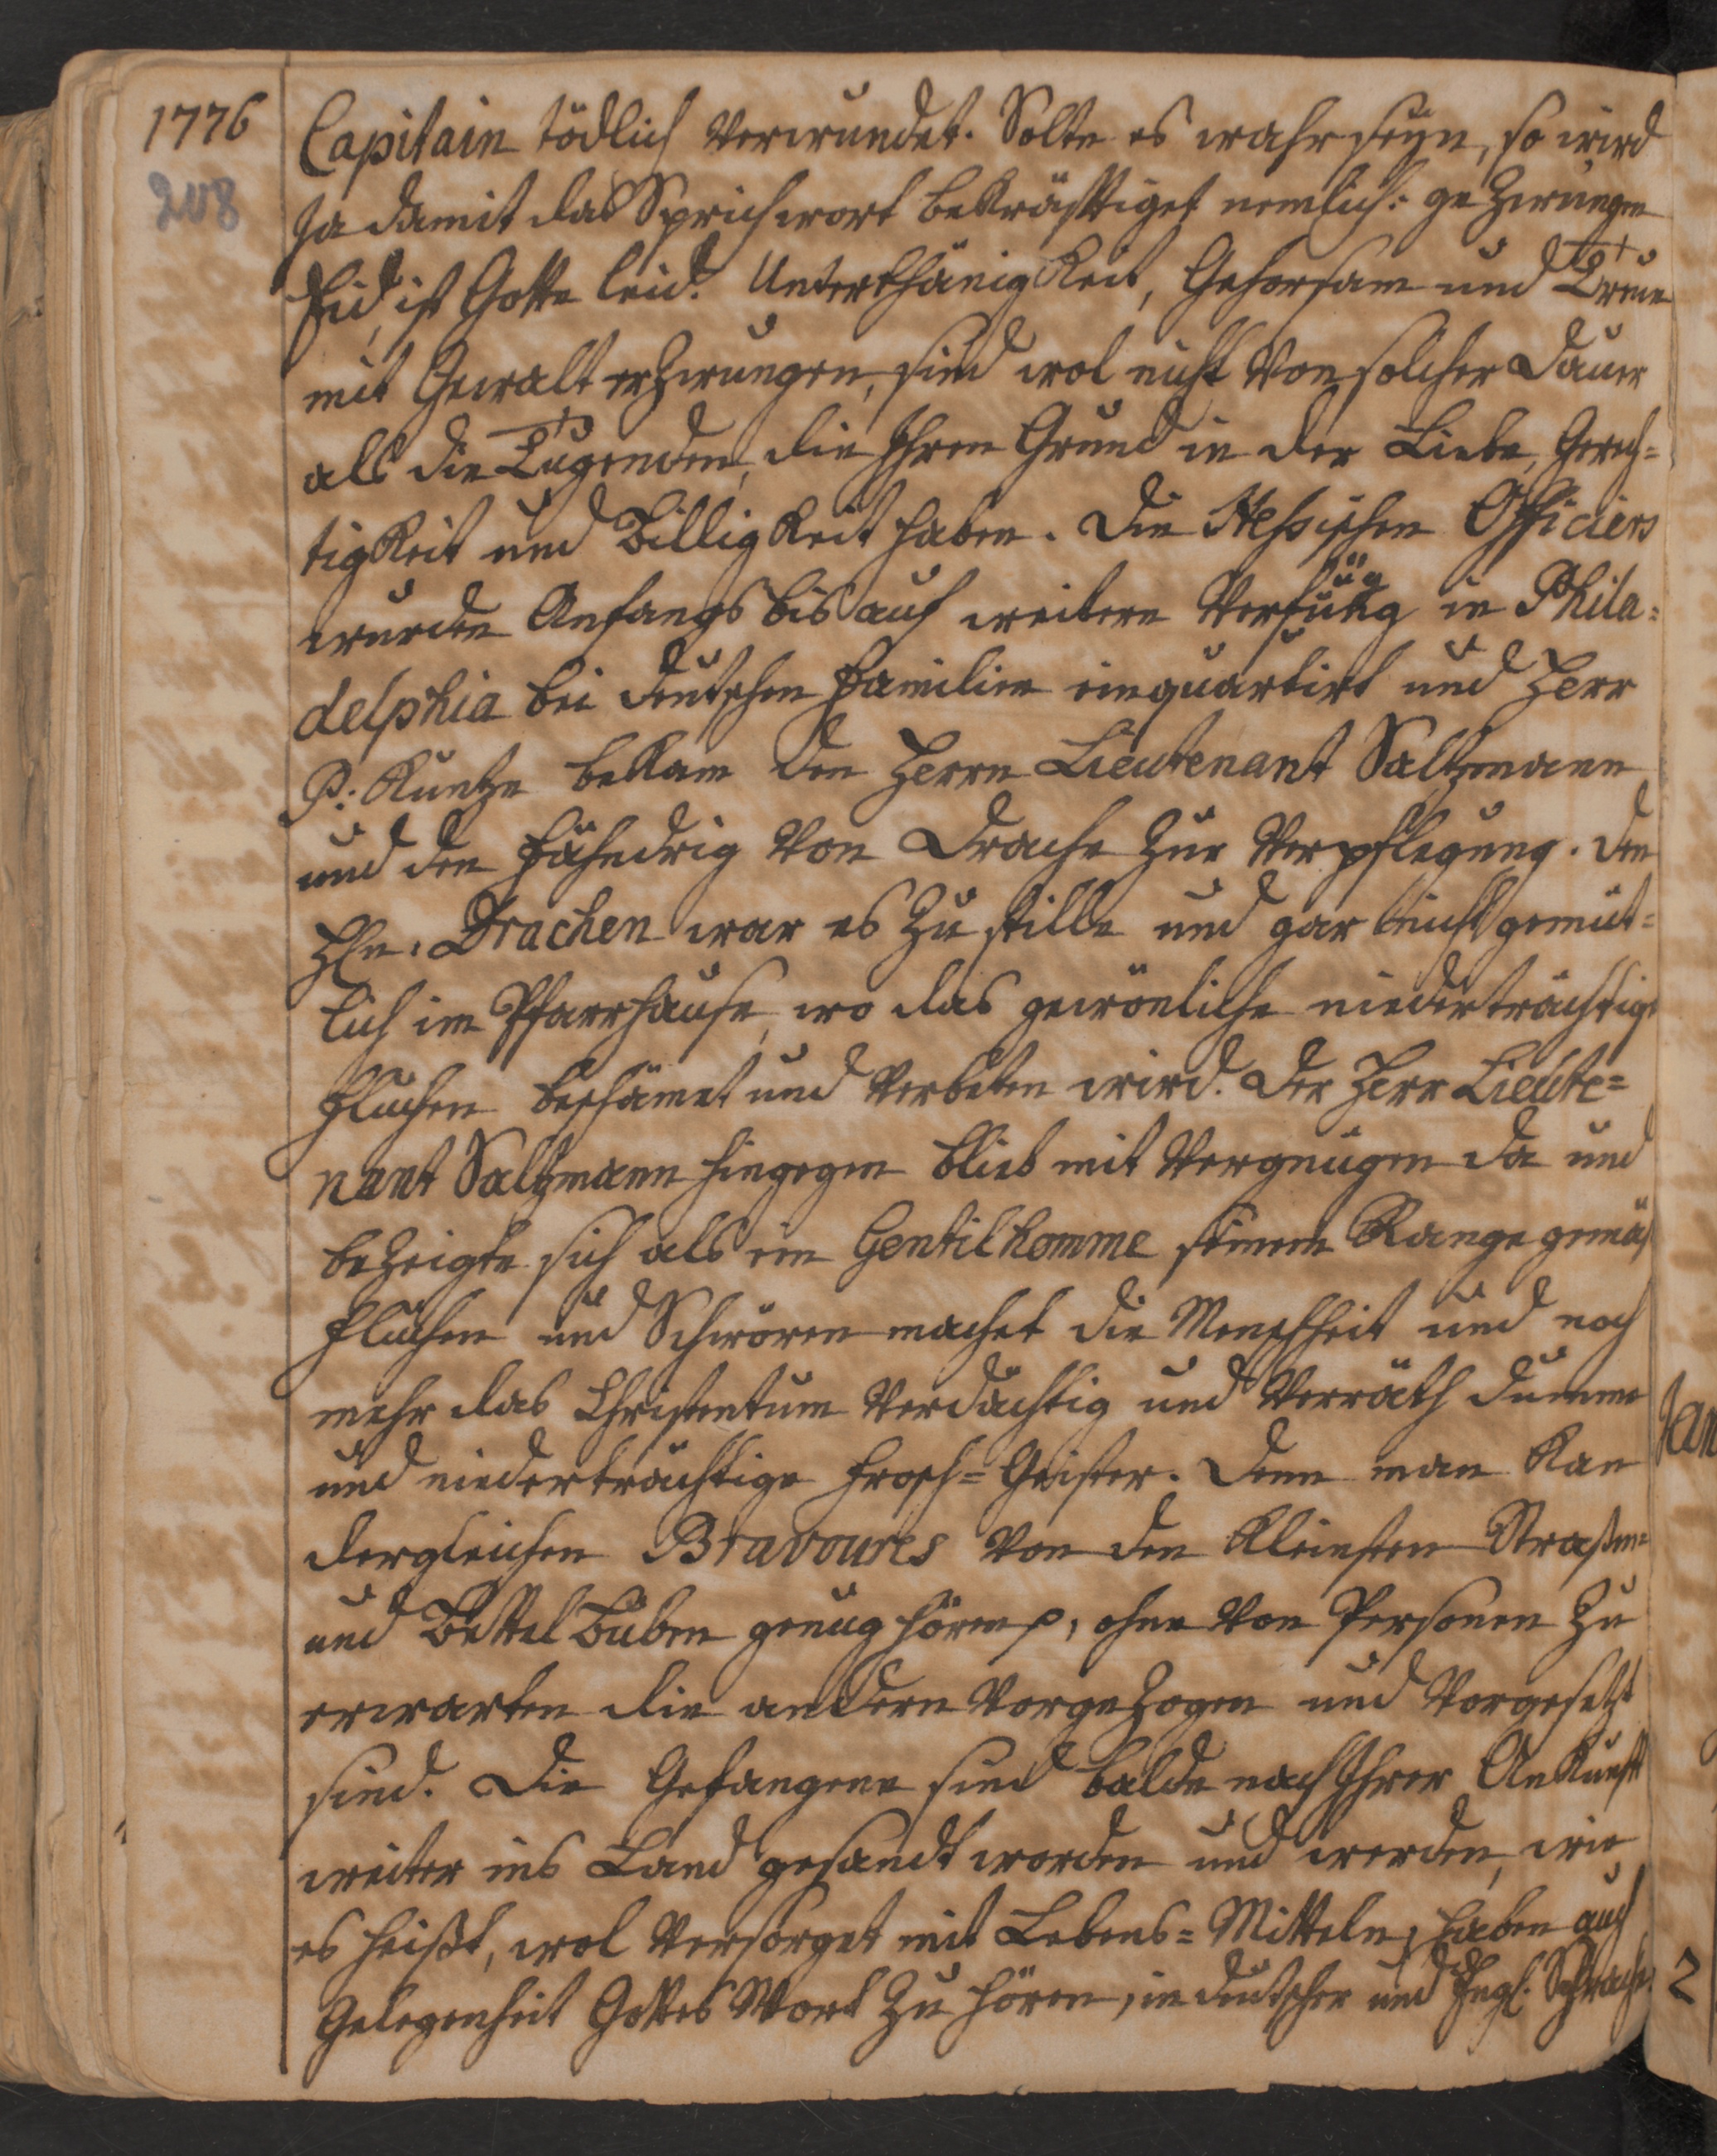 1776
208
Capitain tödlich verwundet. Solte es wahr seyn, so wird
ja damit das Sprichwort bekräfftiget nemlich: gezwungen
Eid, ist Gott leid. Unterthänigkeit, Gehorsam und Treue
mit Gewalt erzwungen, sind wol nicht von solcher Dauer
als die Tugenden, die Ihren Grund in der Liebe, Gerech=
tigkeit und Billigkeit haben. Die Hessischen Officiers
wurden Anfangs bis auf weitere Verfüg in Phila=
delphia bei deutschen Familien einquartirt und Herr
P. Kuntze bekam den Herrn Lieutenant Saltzmann
und den Fähndrig von Drache zur Verpflegung. Den
HEn. Drachen war es zu stille und gar nicht gemüt=
lich im Pfarrhause, wo das gewönliche niederträchtige
Fluchen beschämet und verbeten wird. Der Herr Lieute=
nant Saltzmann hingegen blieb mit Vergnügen da und
bezeigte sich als ein Gentilhomme seinem Range gemäs
Fluchen und Schwören machet die Menschheit und noch
mehr das Christentum verdächtig und verräth dumme
und niederträchtige Frosch=Geister. Denn man kan
dergleichen Bravoures von den kleinsten Straßen=
und Bettel Buben genug hören p, ohne von Personen zu
erwarten die andern vorgezogen und vorgesetzt
sind. Die Gefangene sind balde nach Ihrer Ankunfft
weiter ins Land gesandt worden und werden, wie
es heißt, wol versorget mit Lebens=Mitteln, haben auch
Gelegenheit Gottes Wort zu hören, in deutscher und Engl. Sprache.
Jan
2